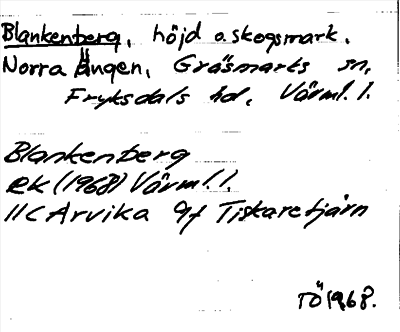 Blankenberg, höjd o. skogsmark.
Norra Ängen, Gräsmarks sn,
Fryksdals hd, Värml. l.
Blankenberg
RK (1968) Värml. l.
11C Arvika 9f Tiskaretjärn
TÖ 1968.